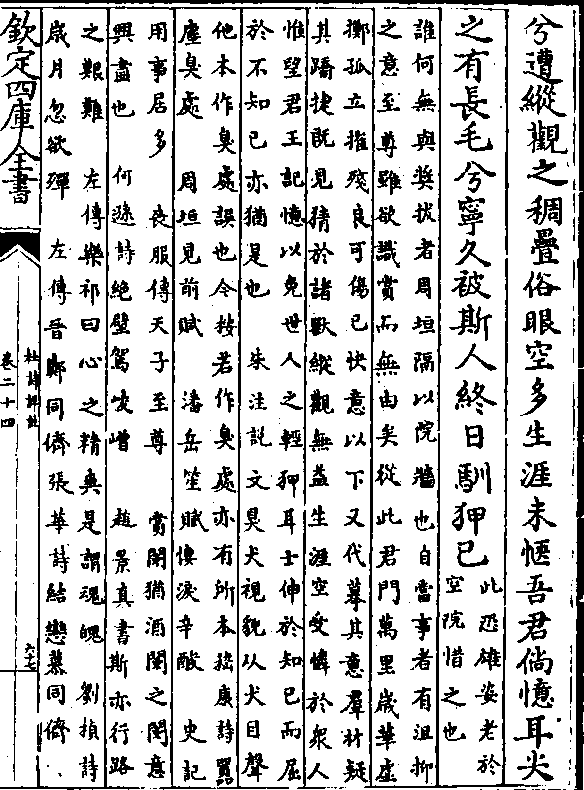 兮遭縱觀之稠疊俗眼空多生涯未愜吾君倘憶耳尖
之有長毛兮寧久被斯人終日馴狎已
此恐雄姿老於
空院惜之也
誰何無與奬拔者周垣隔以院牆也自當事者有沮抑
之意至尊雖欲識賞而無由矣從此君門萬里歲華虛
擲孤立摧殘良可傷已快意以下又代其意羣材疑
其蹻捷既見猜於諸獸縱觀無益生涯空受憐於衆人
惟望君王記憶以免世人之輕狎耳士伸於知已而屈
於不知已亦猶是也 朱注説文狊犬視貌以犬目聲
他本作臭處誤也今按若作臭處亦有所本嵇康詩囂
塵臭處 周垣見前賦 潘岳笙賦悽淚辛酸 史記
用事居多 喪服傳天子至尊 賞闌猶酒闌之闌意
興盡也 何遜詩絶壁駕崚嶒 趙景真書斯亦行路
之艱難 左傳樂祁曰心之精爽是謂魂魄 劉楨詩
歲月忽欲殫 左傳晋鄭同儕張華詩結戀慕同儕
欽定四庫全書
杜詩詳註
卷二十四
六十七